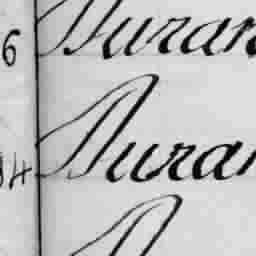 6 Duran
4 Duran